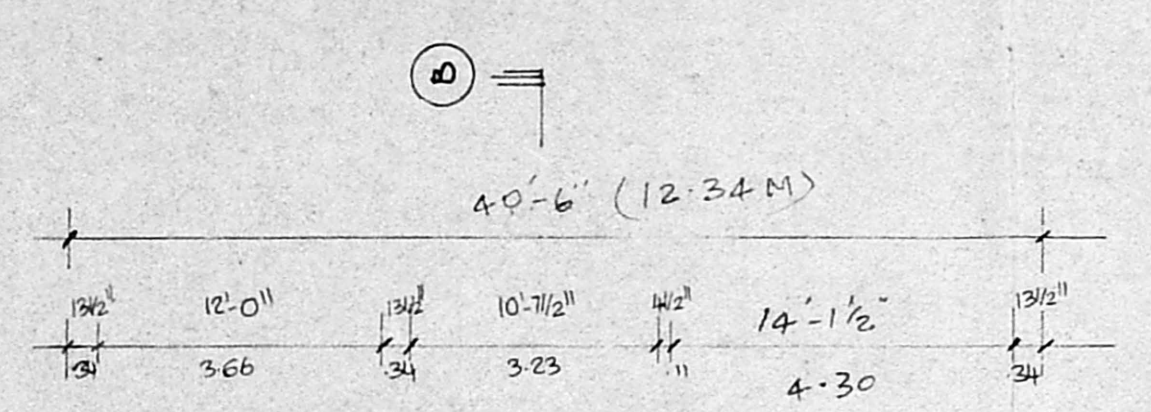 B
40'-6" (12.34 M)
13 1/2" 12'-0" 13 1/2" 10'-7 1/2" 4 1/2" 14'-1 1/2" 13 1/2"
.34 3.66 .34 3.23 .11 4.30 .34